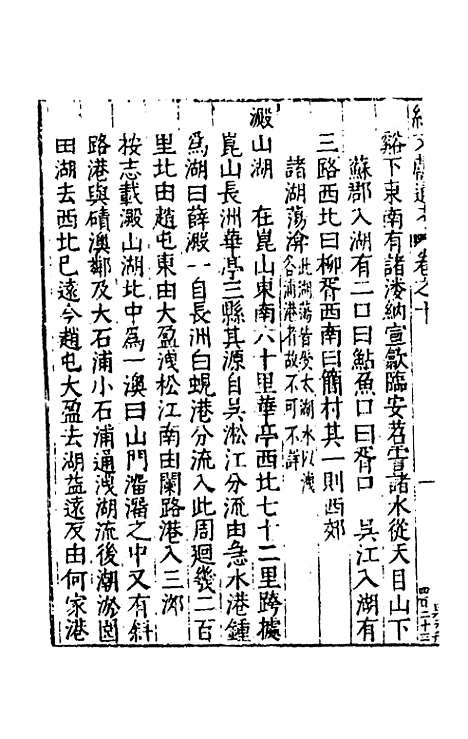 谿下東南有諸漊納宣歙臨安苕霅諸水從天目山下
蘇郡入湖有二口曰鮎魚口曰胥口　吳江入湖有
三路西北曰柳胥西南曰簡村其一則西郊
諸湖蕩瀹此湖蕩皆受太湖水以洩
各浦港者故不可不詳
澱山湖　在崑山東南六十里華亭西北七十二里跨據
崑山長洲華亭三縣其源自吳淞江分流由急水港鍾
為湖曰薛澱一自長洲白蜆港分流入此周迴幾二百
里北由趙屯東由大盈洩松江南由闌路港入三泖
按志載澱山湖北中為一澳曰山門溜㶟之中又有斜
路港與磧澳鄰及大石浦小石浦通洩湖流後潮淤園
田湖去西北已遠今趙屯大盈去湖益遠反由何家港
卷之十
一
四百二十三